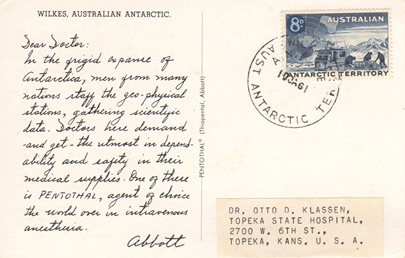 WILKES, AUSTRALIAN ANTARCTIC.
Dear Doctor:
In the frigid expanse of
Antarctica, men from many
nations staff the geo-physical
stations, gathering scientific
data. Doctors here demand
-and get- the utmost in depend-
ability and safety in their
medical supplies. One of these
is PENTOTHAL, agent of choice
the world over in intravenous
anesthesia.
Abbott
PENTOTHAL® (Thiopental, Abbott)
8D
AUSTRALIAN
ANTARCTIC TERRITORY
AUST ANTARCTIC TER
DR. OTTO D. KLASSEN,
TOPEKA STATE HOSPITAL,
2700 W. 6TH ST.,
TOPEKA, KANS. U. S. A.